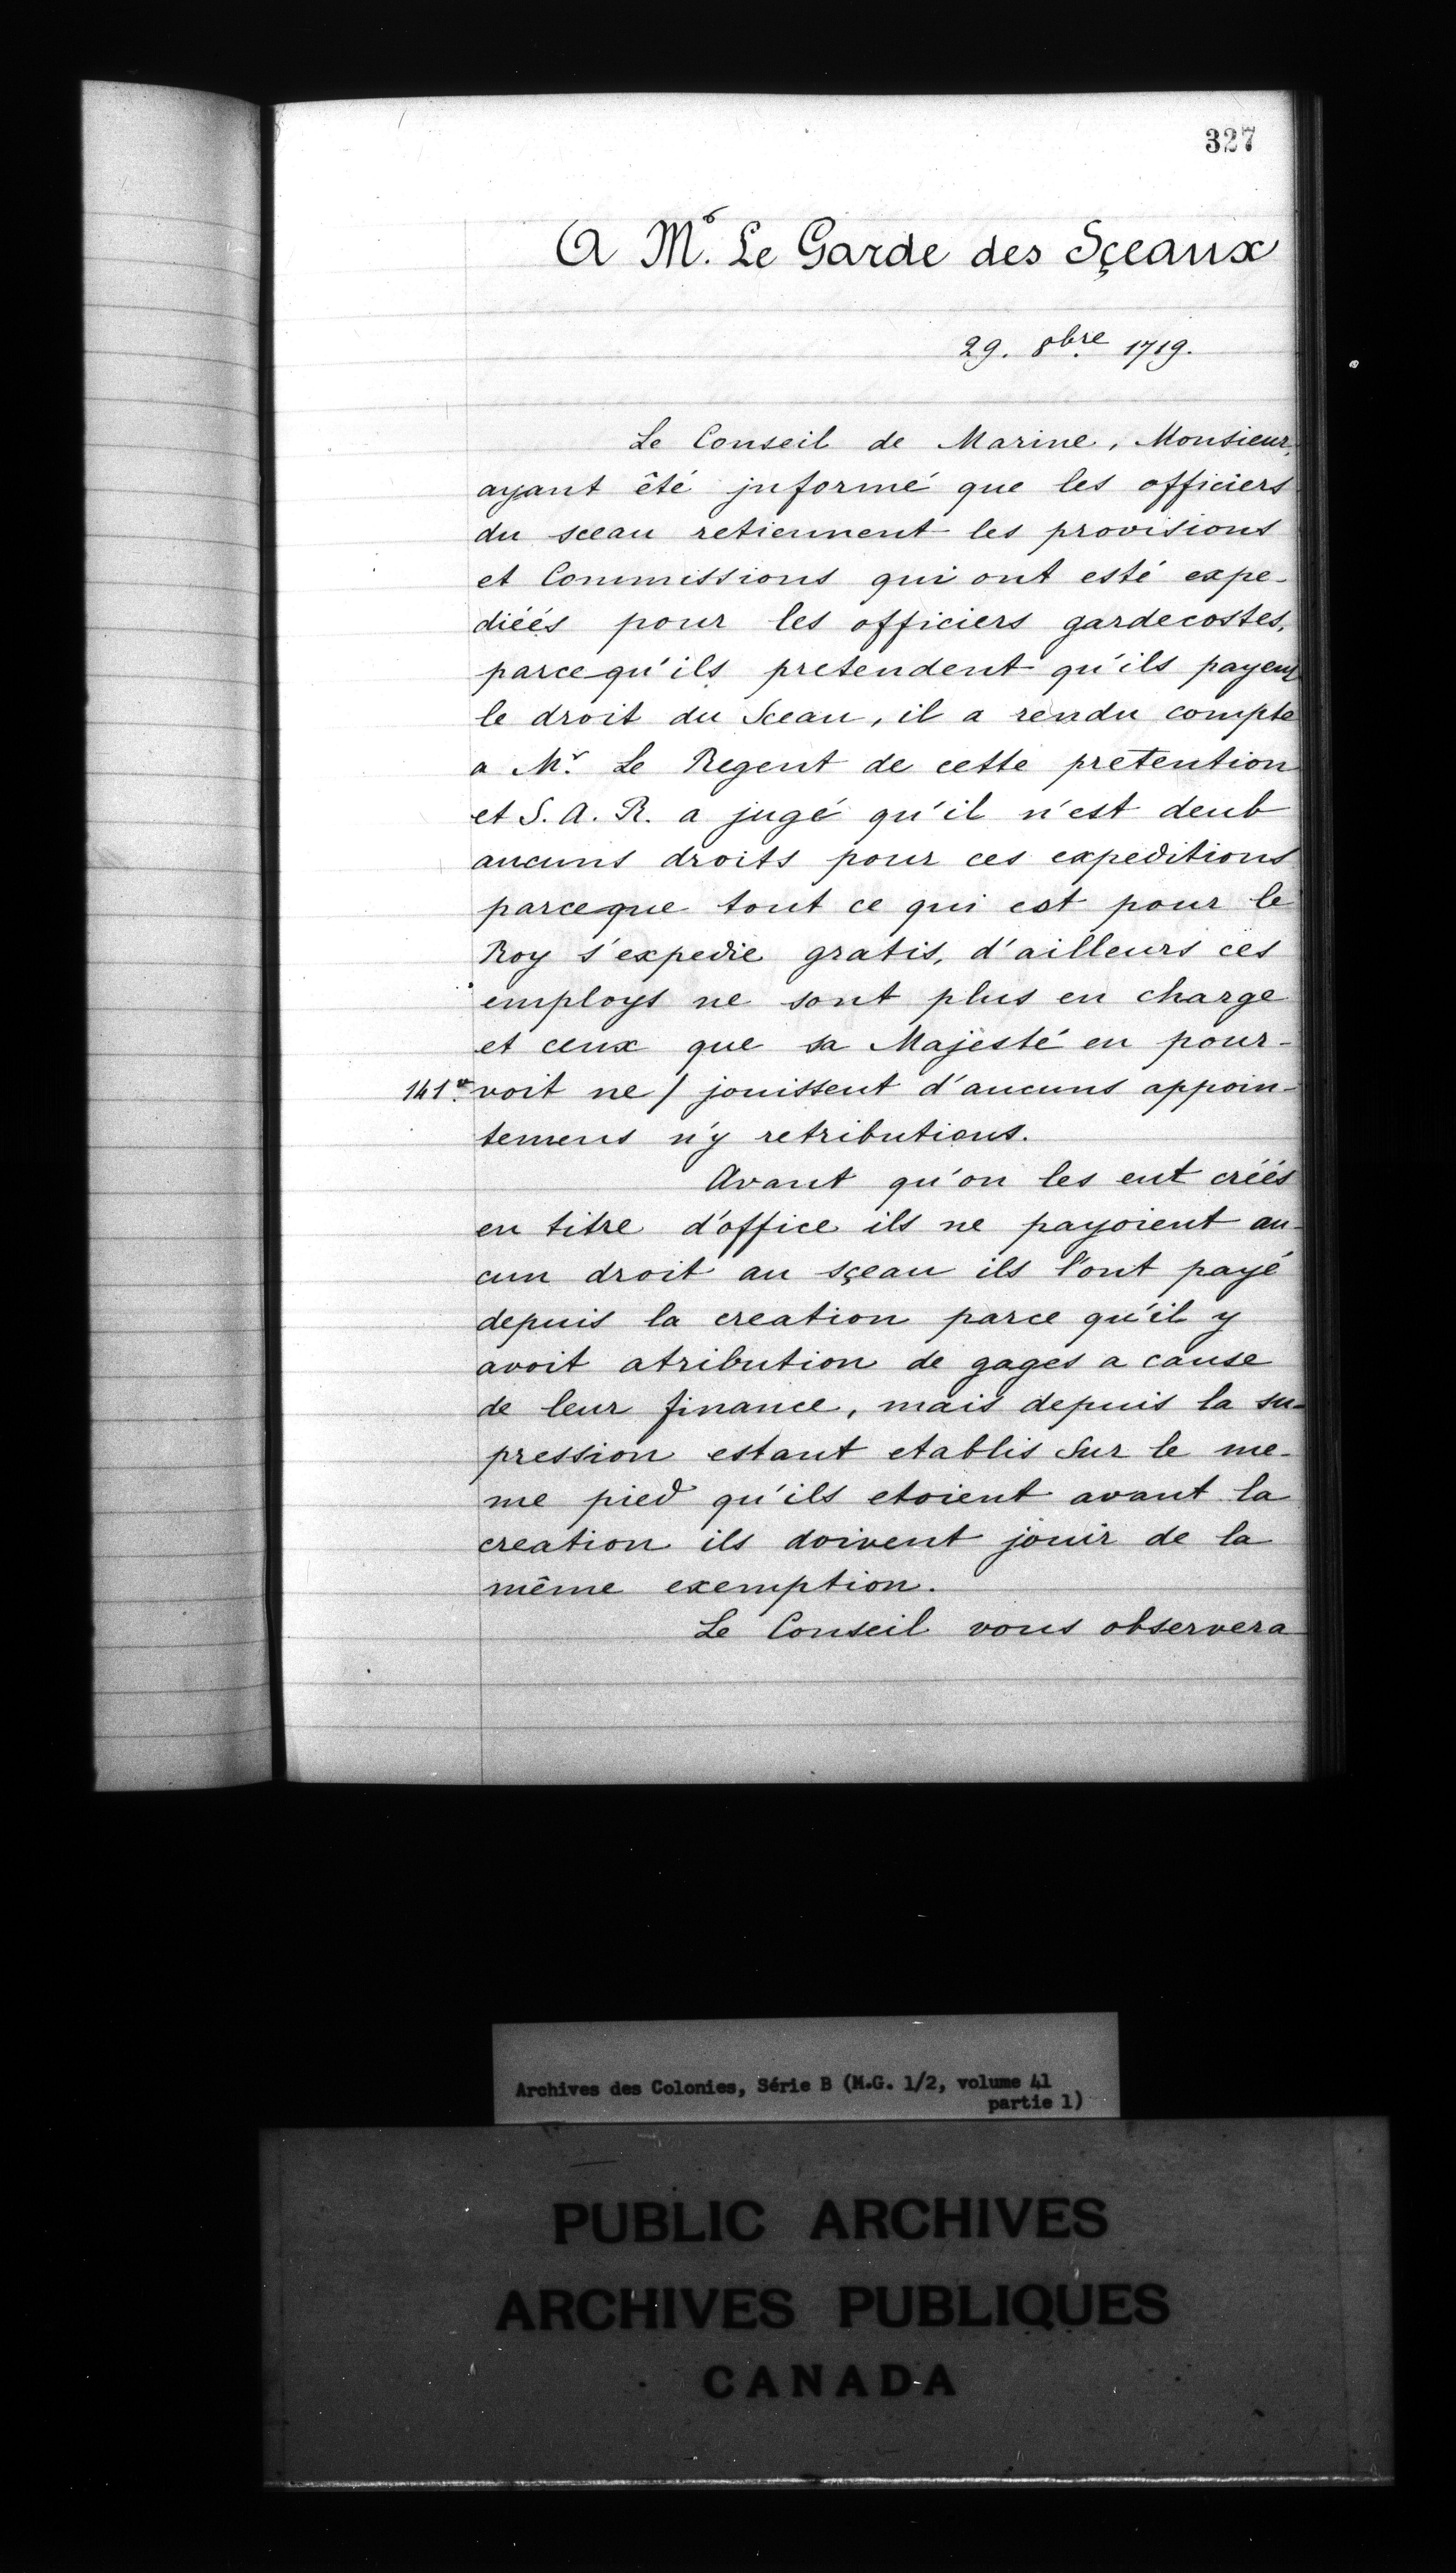 327
A Mr. Le Garde des Sçeaux
29. 8bre 1719.
Le Conseil de Marine, Monsieur,
ayant êté jnformé que les officiers
du sceau retiennent les provisions
et Commissions qui ont esté expe-
diéés pour les officiers gardecostes,
parcequ'ils pretendent qu'ils payent
le droit du Sceau, il a rendu compte
a Mr. Le Regent de cette pretention
et S. A. R. a jugé qu'il n'est deub
aucuns droits pour ces expeditions
parceque tout ce qui est pour le
Roy s'expedie gratis, d'ailleurs ces
employs ne sont plus en charge
et ceux que sa Majesté en pour-
141v. voit ne / jouissent d'aucuns appoin-
temens n'y retributions.
Avant qu'on les eut créés
en titre d'office ils ne payoient au-
cun droit au sçeau ils l'ont payé
depuis la creation parce qu'il y
avoit atribution de gages a cause
de leur finance, mais depuis la su-
pression estant etablis Sur le me-
me pied qu'ils etoient avant la
creation ils doivent jouir de la
même exemption.
Le Conseil vous observera
Archives des Colonies, Série B (M.G. 1/2, volume 41
partie 1)
PUBLIC ARCHIVES
ARCHIVES PUBLIQUES
CANADA